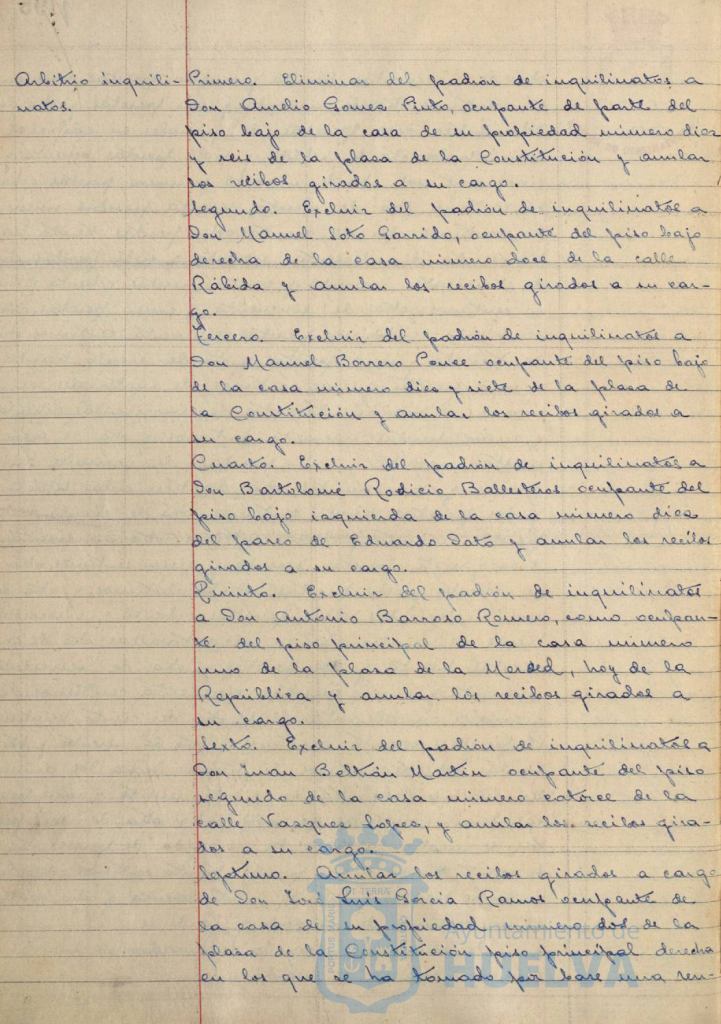 Arbitrio inquili-
natos.
Primero. Eliminar del padrón de inquilinatos a
Don Aurelio Gomez Pinto, ocupante de parte del
piso bajo de la casa de su propiedad número diez
y seis de la plaza de la Constitución y anular
los recibos girados a su cargo.
Segundo. Excluir del padrón de inquilinatos a
Don Manuel Soto Garrido, ocupante del piso bajo
derecha de la casa número doce de la calle
Rábida y anular los recibos girados a su car-
go.
Tercero. Excluir del padrón de inquilinatos a
Don Manuel Borrero Ponce ocupante del piso bajo
de la casa número diez y siete de la plaza de
la Constitución y anular los recibos girados a
su cargo.
Cuarto. Excluir del padrón de inquilinatos a
Don Bartolomé Rodicio Ballesteros ocupante del
piso bajo izquierda de la casa número diez
del paseo de Eduardo Dato y anular los recibos
girados a su cargo.
Quinto. Excluir del padrón de inquilinatos
a Don Antonio Barroso Romero, como ocupan-
te del piso principal de la casa número
uno de la plaza de la Merded, hoy de la
República y anular los recibos girados a
su cargo.
Sexto. Excluir del padrón de inquilinatos a
Don Juan Beltrán Martin ocupante del piso
segundo de la casa número catorce de la
calle Vazquez Lopez, y anular los recibos gira-
dos a su cargo.
Septimo. Anular los recibos girados a cargo
de Don José Luis Garcia Ramos ocupante de
la casa de su propiedad número dos de la
plaza de la Constitución piso principal derecha
en los que se ha tomado por base una ren-
Ayuntamiento de
HUELVA